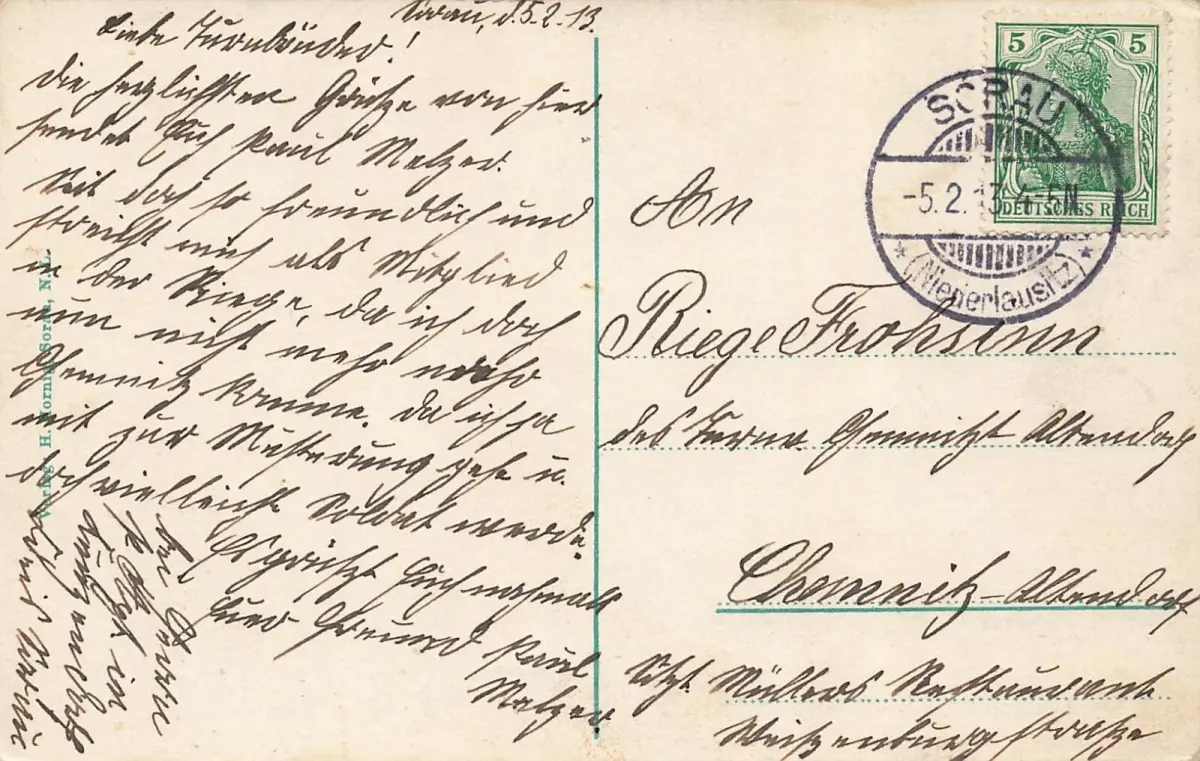 Sorau, d. 5.2.13.
Liebe Turnbrüder!
Die herzlichsten Grüsze von hier
sendet Euch Paul Melzer.
Seit doch so freundlich und
streicht mich als Mitglied
in der Riege, da ich doch
nun nicht mehr nach
Chemnitz komme. Da ich ja
mit zur Musterung gehe u.
doch vielleicht Soldat werde.
Es grüszt Euch nochmals
Euer Freund Paul
Melzer
bei Herrn
in
Verlag H. Hornig, Sorau, N.-L.
5 5
DEUTSCHES REICH
SORAU
-5.2.13.4-5N
* (Niederlausitz) *
An
Riege Frohsinn
des Turnv. Chemnitz Altendorf
Chemnitz-Altendorf
Sitz. Müllers Restaurant
Weiszenburgstrasze